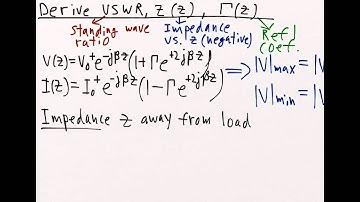 Derive VSWR, Z(z), Γ(z)
Standing wave ratio
Impedance vs. z (negative)
Refl coef.
V(z)=V₀⁺e^{-jβz}(1+Γe^{+2jβz})
I(z)=I₀⁺e^{-jβz}(1-Γe^{+2jβz})
⟹ |V|max = |V
|V|min = |V
Impedance z away from load